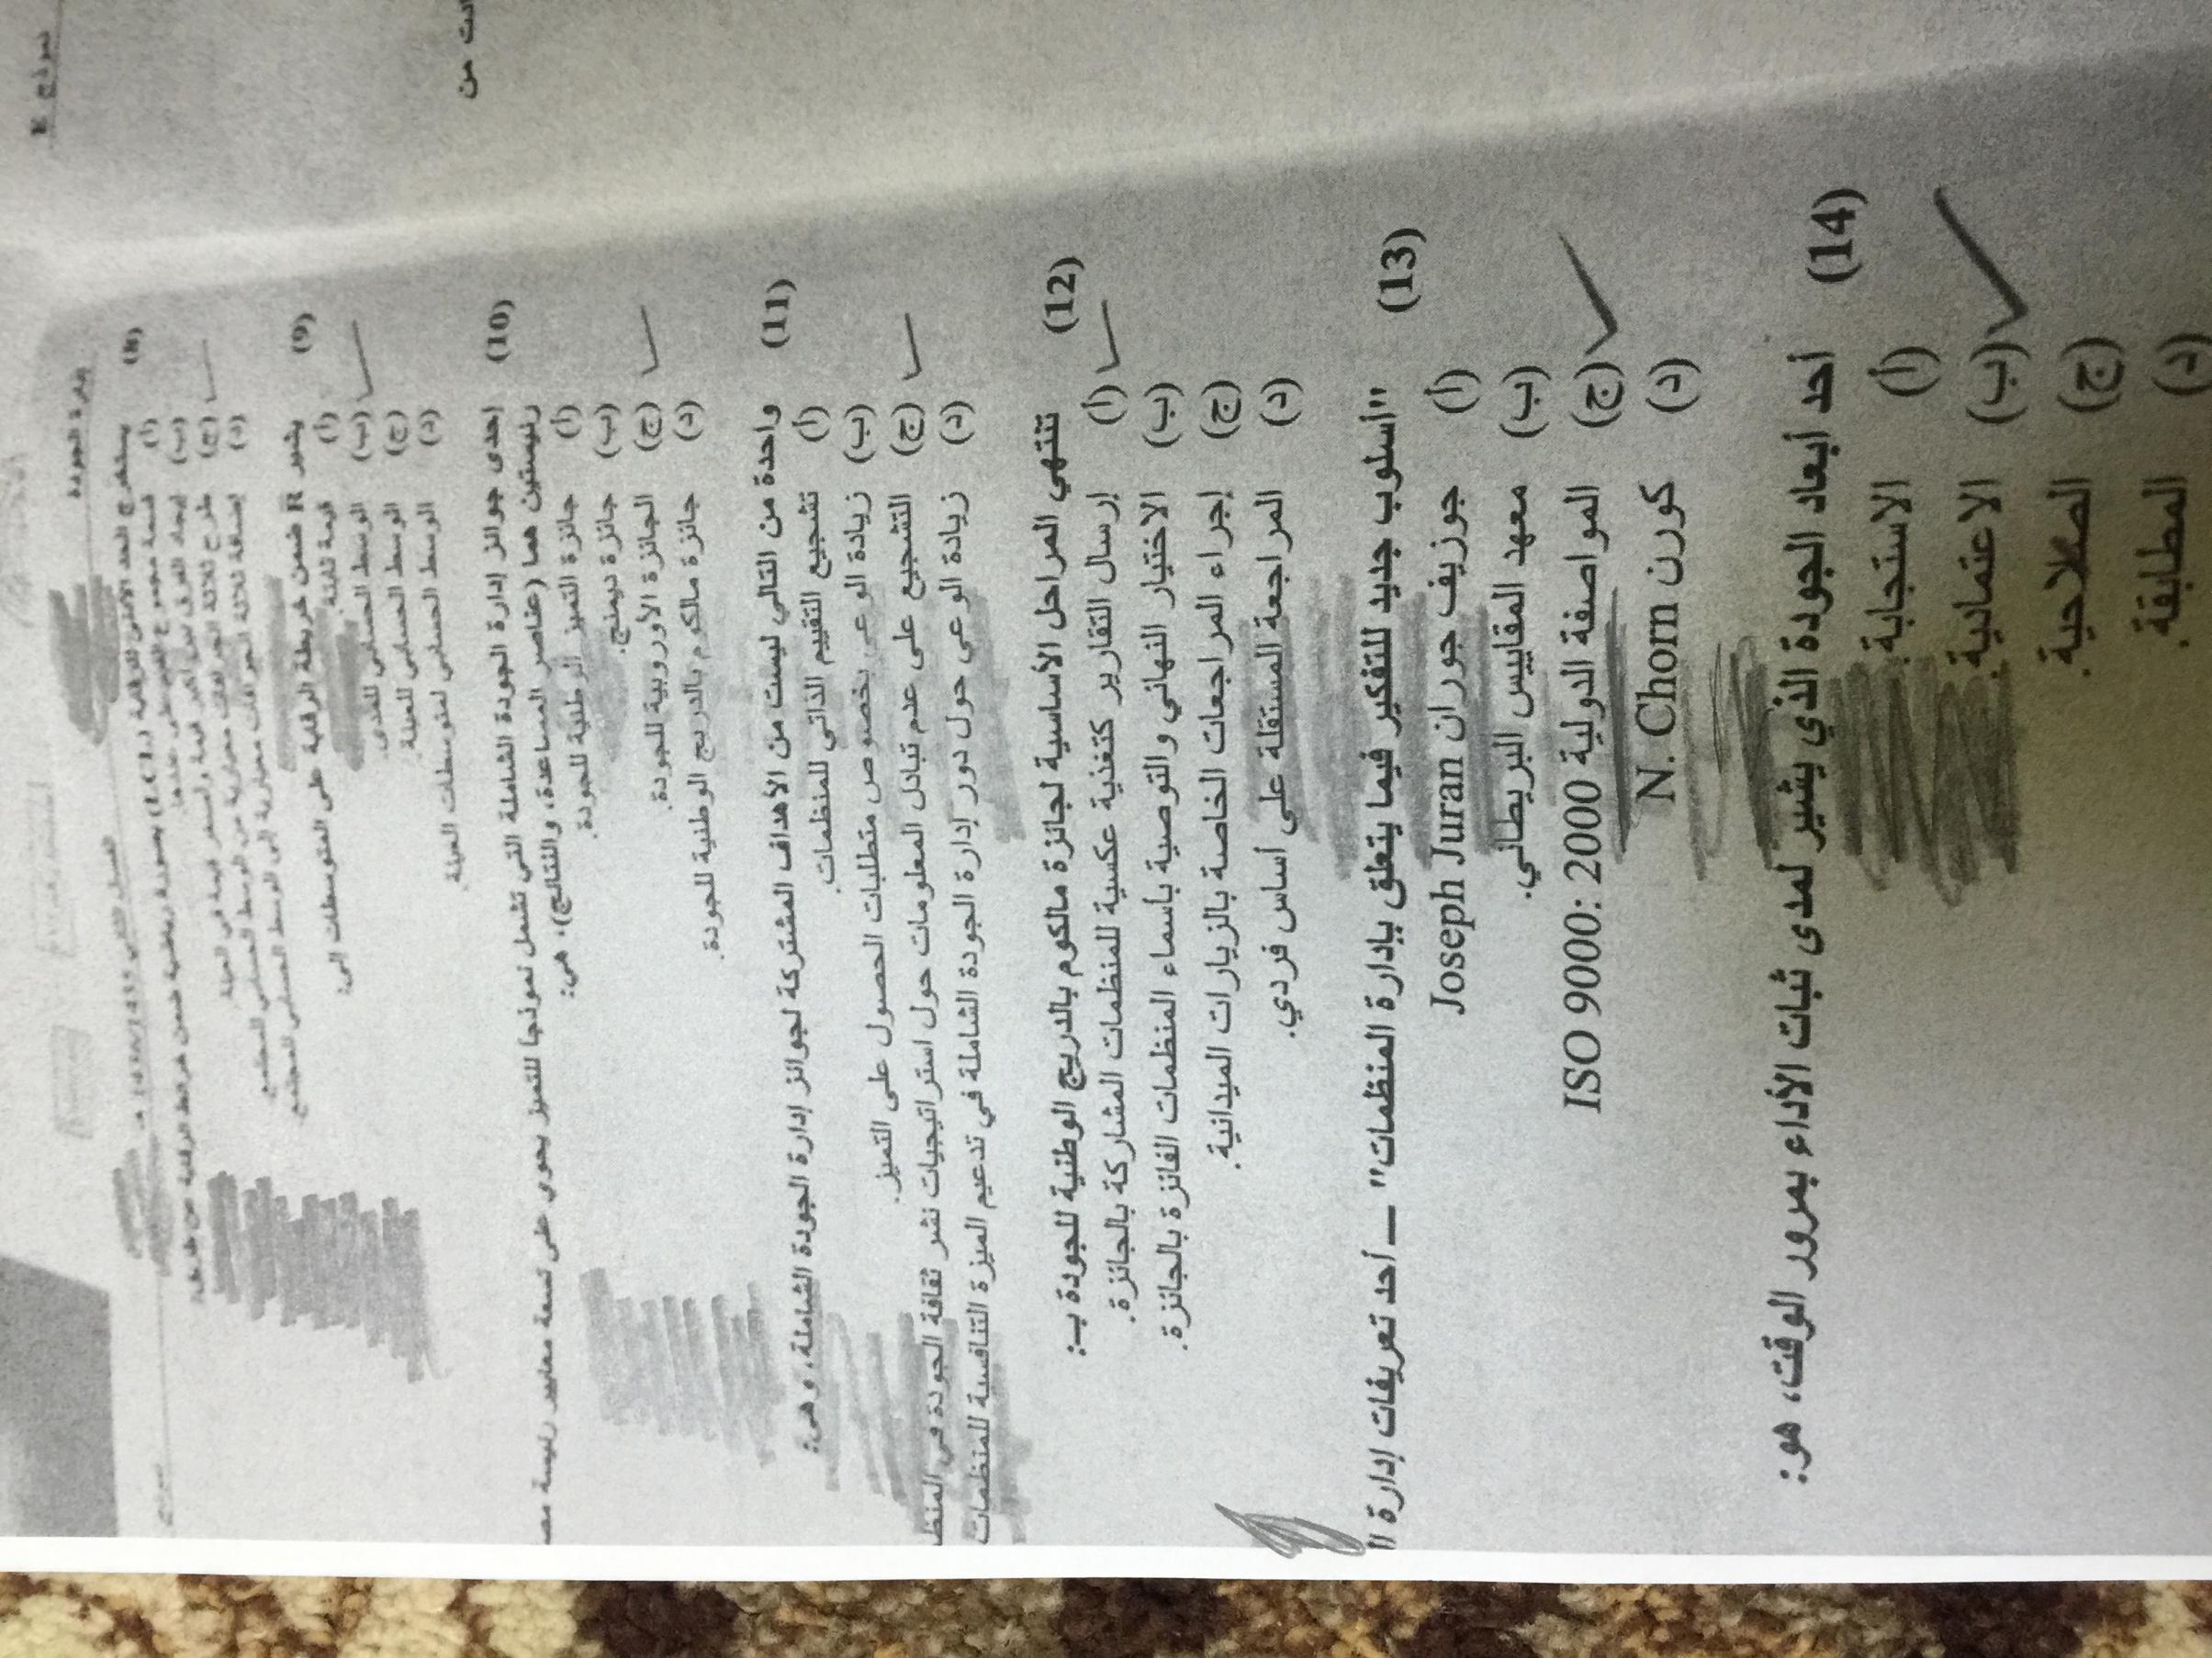 نموذج E
إدارة الجودة
(8) يستخرج الحد الأدنى للرقابة (LCL) بصورة رياضية ضمن خرائط الرقابة عن طريق:
(أ) قسمة مجموع القيم على عددها.
(ب) إيجاد الفرق بين أكبر قيمة وأصغر قيمة في العينة.
(ج) طرح ثلاثة انحرافات معيارية من الوسط الحسابي للمجتمع
(د) إضافة ثلاثة انحرافات معيارية إلى الوسط الحسابي للمجتمع
(9) يشير R ضمن خريطة الرقابة على المتوسطات إلى:
(أ) قيمة ثابتة.
(ب) الوسط الحسابي للمدى.
(ج) الوسط الحسابي للعينة
(د) الوسط الحسابي لمتوسطات العينة.
(10) إحدى جوائز إدارة الجودة الشاملة التي تشمل نموذجا للتميز يحوي على تسعة معايير رئيسة
رئيستين هما (عناصر المساعدة، والنتائج)، هي:
(أ) جائزة التميز الوطنية للجودة.
(ب) جائزة ديمنج.
(ج) الجائزة الأوروبية للجودة.
(د) جائزة مالكوم بالدريج الوطنية للجودة.
(11) واحدة من التالي ليست من الأهداف المشتركة لجوائز إدارة الجودة الشاملة، وهي:
(أ) تشجيع التقييم الذاتي للمنظمات.
(ب) زيادة الوعي بخصوص متطلبات الحصول على التميز.
(ج) التشجيع على عدم تبادل المعلومات حول استراتيجيات نشر ثقافة الجودة في
(د) زيادة الوعي حول دور إدارة الجودة الشاملة في تدعيم الميزة التنافسية للمنظمات
(12) تنتهي المراحل الأساسية لجائزة مالكوم بالدريج الوطنية للجودة بـ:
(أ) إرسال التقارير كتغذية عكسية للمنظمات المشاركة بالجائزة.
(ب) الاختيار النهائي والتوصية بأسماء المنظمات الفائزة بالجائزة.
(ج) إجراء المراجعات الخاصة بالزيارات الميدانية.
(د) المراجعة المستقلة على أساس فردي.
(13) "أسلوب جديد للتفكير فيما يتعلق بإدارة المنظمات" — أحد تعريفات إدارة
(أ) جوزيف جوران Joseph Juran
(ب) معهد المقاييس البريطاني.
(ج) المواصفة الدولية ISO 9000: 2000
(د) كورن N. Chorn
(14) أحد أبعاد الجودة الذي يشير لمدى ثبات الأداء بمرور الوقت، هو:
(أ) الاستجابة.
(ب) الاعتمادية.
(ج) الصلاحية.
(د) المطابقة.